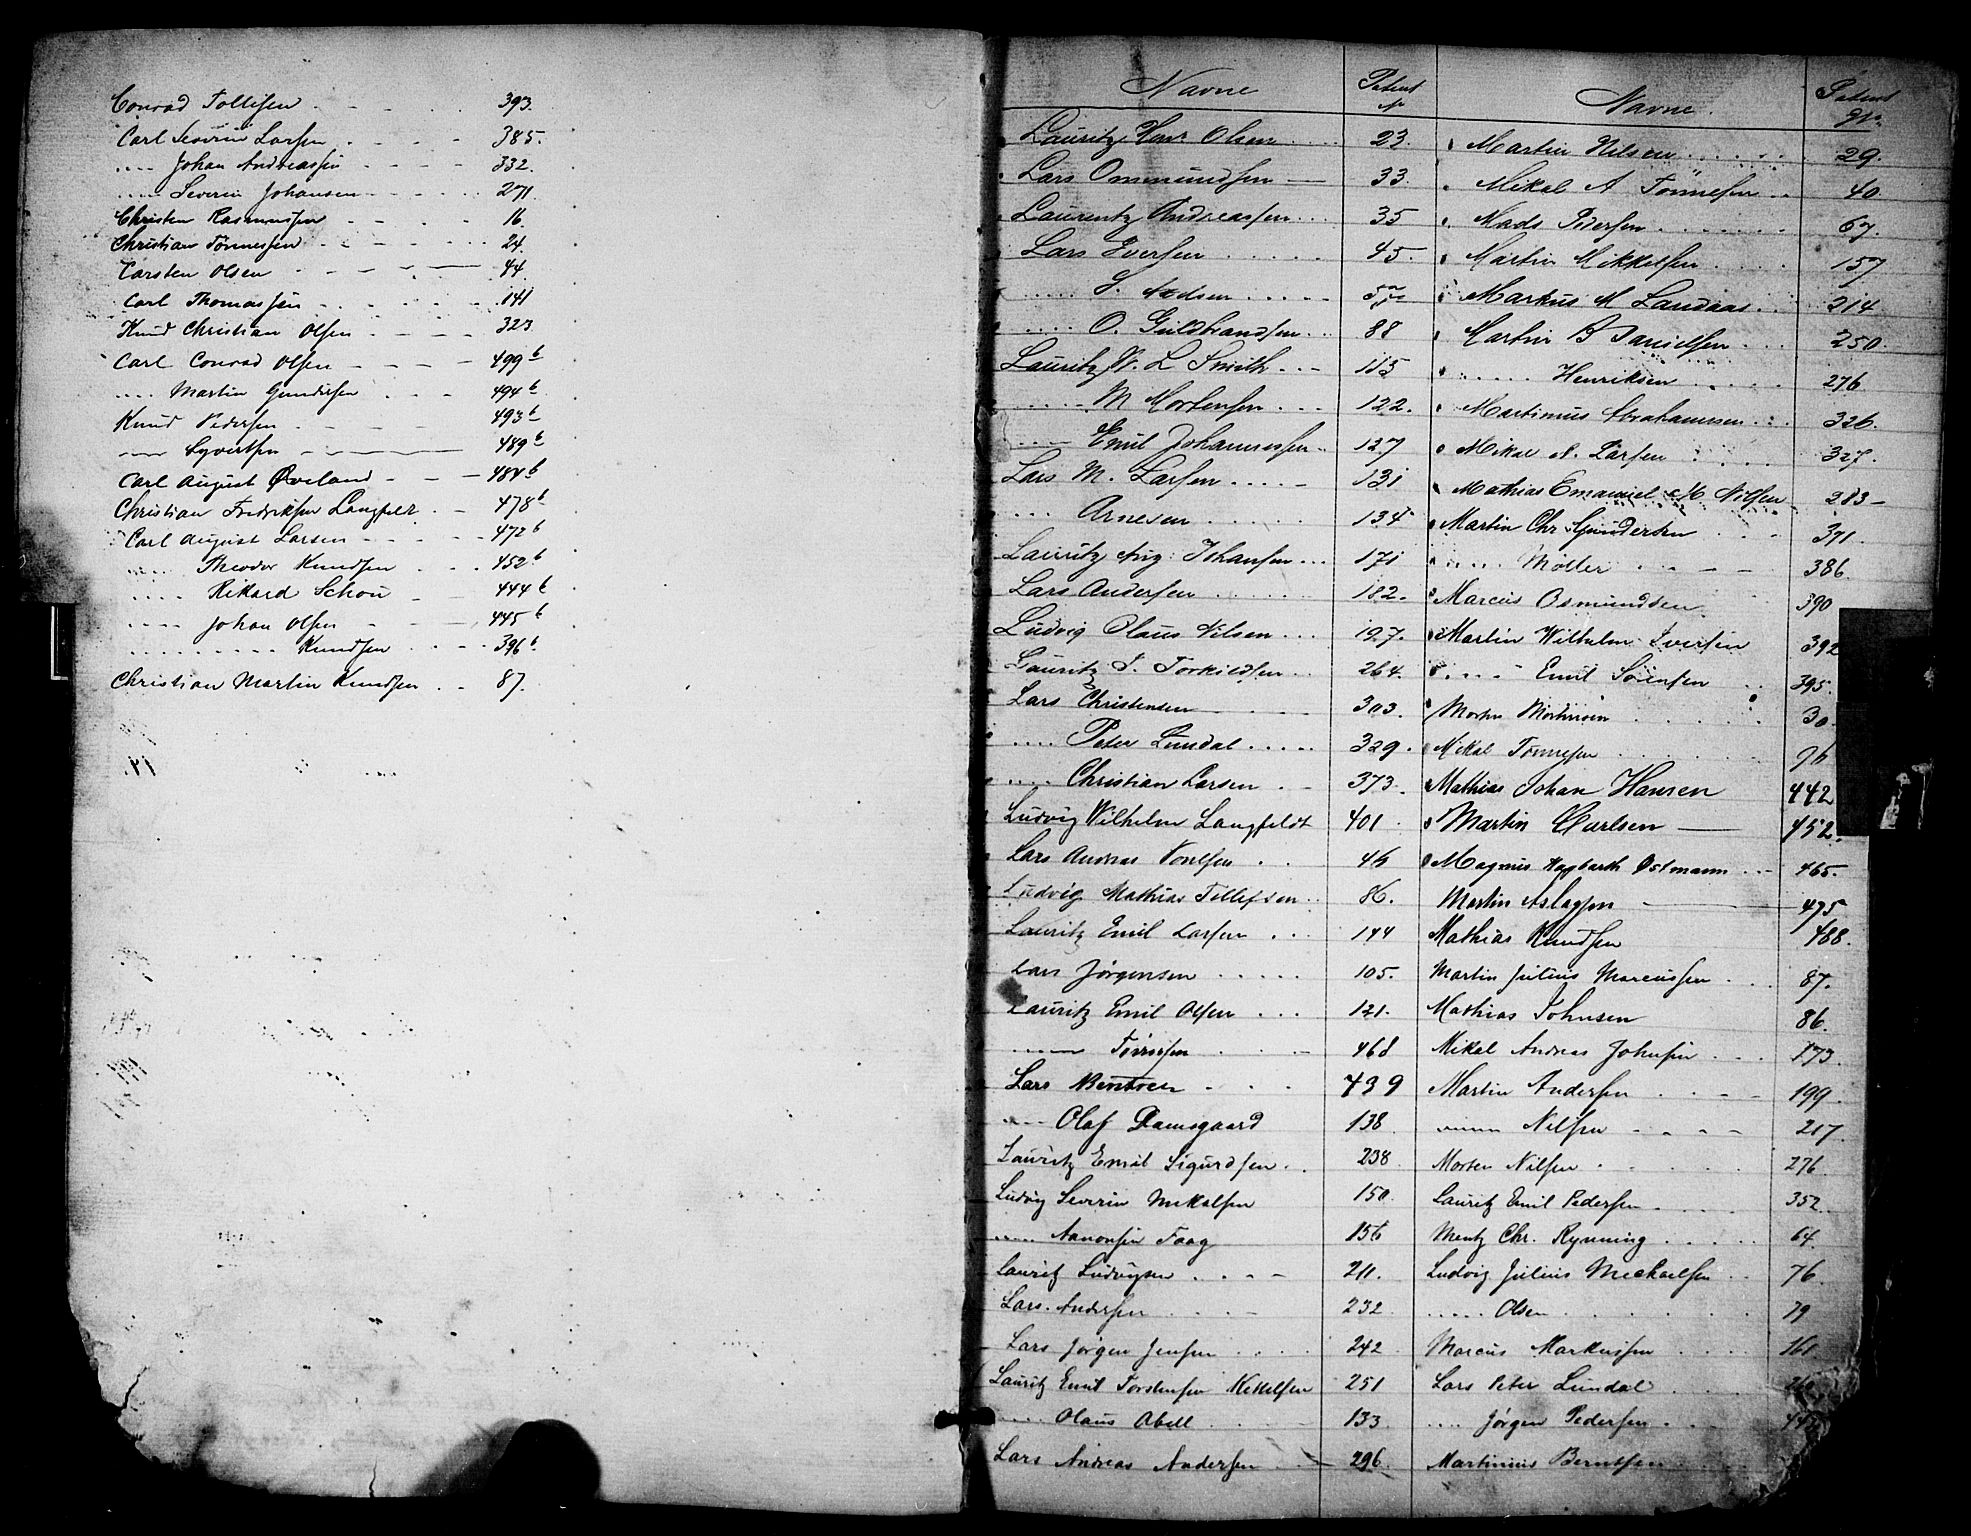 Conrad Tollefsen - - - - 393.
Carl Severin Larsen - - - 385.
.... Johan Andreassen - - - - 332.
.... Severin Johansen - - - - 271.
Christen Rasmussen - - - 16.
Christian Tönnessen - - - - 24.
Carsten Olsen - - - 44.
Carl Thomassen - - - - 141
Knud Christian Olsen - - - 323
Carl Conrad Olsen - - - 499b
.... Martin Gundersen - - - 494b
Knud Pedersen - - - - 493b
—— Syvertsen - - 489b
Carl August Øveland - - - 484b
Christian Fredriksen Langfeld - - 478b
Carl August Larsen - - - - 472b
.... Theodor Knudsen - - - 452b
.... Rikard Schou - 444b
.... Johan Olsen - - - 445b
......... Knudsen - - - 396b
Christian Martin Knudsen - - 87.
Navne Patent №
Lauritz Olsen .... 23.
Lars Ommundsen — 33.
Laurentz Andreassen ... 35
Lars Iversen ..... 45.
.....
..... O. Guldbrandsen ... 88
Lauritz W. L Smith ... 115
..... M Mortensen ... 122.
—— Emil Johannessen .. 127
Lars M. Larsen .... 131
.... Arnesen ..... 134
Lauritz Aug: Johansen ... 171
Lars Andersen ..... 182.
Ludvig Olaus Nilsen ... 197.
Lauritz T. Torkildsen ... 264.
Lars Christensen - - - 303.
.... Peter Lundal ..... 329.
.... Christian Larsen . - 373.
Ludvig Wilhelm Langfeldt 401.
Lars Andreas . . 46
Ludvig Mathias Tellefsen .. 86.
Lauritz Emil Larsen . . . 144
Lars Jørgensen ..... 105.
Lauritz Emil Olsen . . . 121.
—— Tönnesen . . - 468
Lars Bentsen - . . 439
.... Olaf Damsgaard 138.
Lauritz Emil Sigurdsen . . 238.
Ludvig Severin Mikalsen 150.
..... Aanonsen Faag 156
Lauritz Ludvigsen . . . - 211.
Lars Andersen . . . - 232
Lars Jørgen Jensen . . . . 242
Lauritz Emil Torstensen Kittelsen 251
.... Olaus Abell . . - 133
Lars Andreas Andersen . - 296.
Navne. Patent №.
Martin Nilsen ...... 29.
Mikal A Tönnesen .. 40.
Mads Pedersen ....... 67.
Martin Mikkelsen .... 157
Markus M Landaas . 214
Martin B Danielsen ... 250.
..... Henriksen ..... 276
Martinus Abrahamsen ... 326.
Mikal N. Larsen . ... 327.
Mathias Emanuel M. Nilsen 283-
Martin Chr Gundersen . . . 371.
..... Möller . . - - 386.
Marcus Osmundsen 390
Martin Wilhelm Iversen 392
.... Emil Sörensen . . 395.
Morten Mortensen ..... 30.
Mikal Tönnesen ..... 76
Mathias Johan Hansen 442
Martin Carlsen — 452.
Magnus Hagbarth Østmann ... 465.
Martin Aslagsen - — 475
Mathias Knudsen 488.
Martin Julius Marcussen ... 87.
Mathias Johnsen 86.
Mikal Andreas Johnsen ... 173.
Martin Andersen . . - - 199.
—— Nilsen - - - - 217.
Morten Nilsen . . . . 276
Lauritz Emil Pedersen .... 352.
Mentz Chr. Rynning ..... 64.
Ludvig Julius Mechaelsen .. 76.
..... Olsen . . . . 79
Marcus Markussen .... 161.
Lars Peter Lundal ....
.... Jørgen Pedersen . . .
Martinius Berntsen